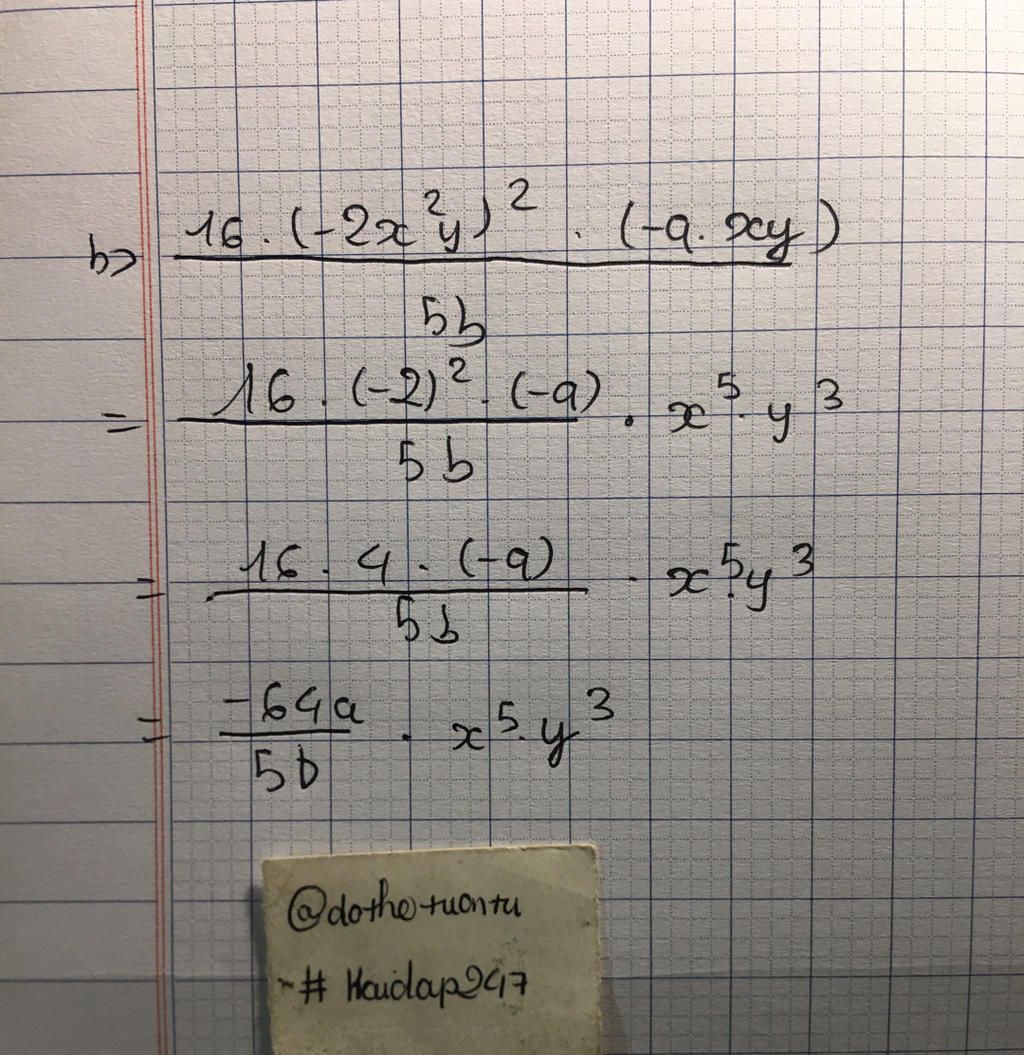 b> 16 . (-2x²y)² . (-a . xy)
5b
= 16 . (-2)² . (-a) . x⁵ . y³
5b
= 16 . 4 . (-a) . x⁵ . y³
5b
= -64a . x⁵ . y³
5b
@dothetuantu
# Hoidap247